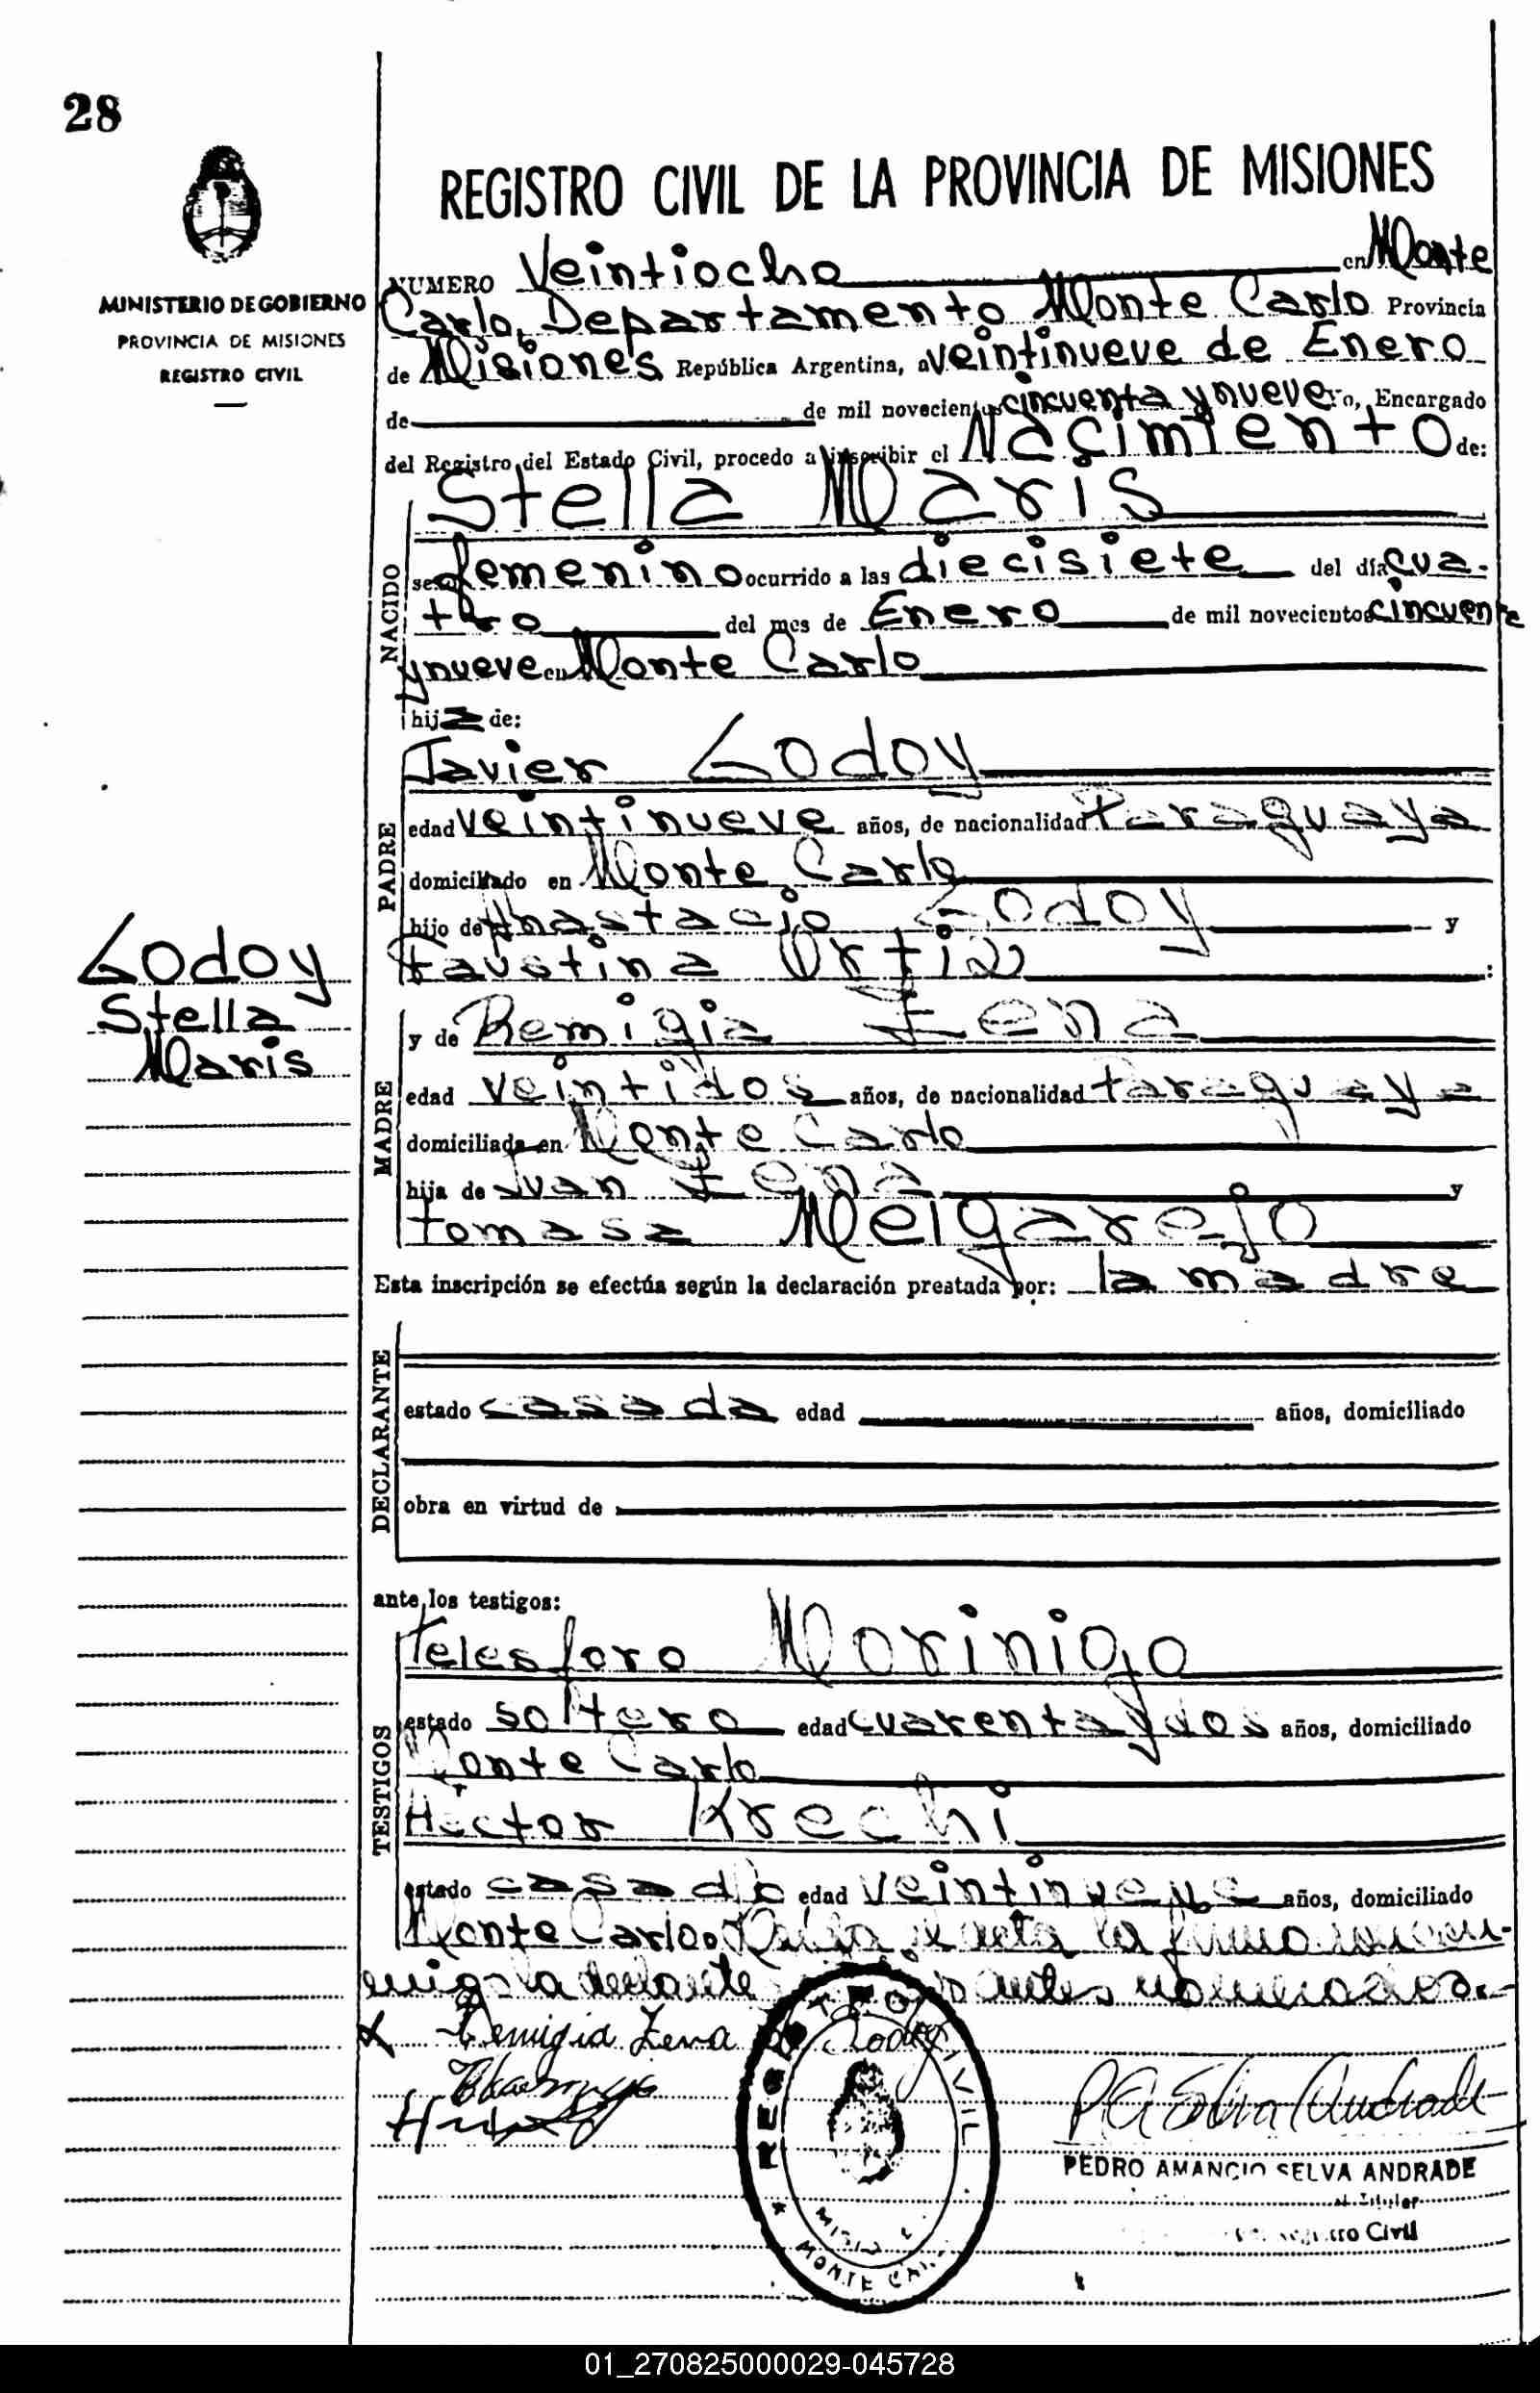 28
REGISTRO CIVIL DE LA PROVINCIA DE MISIONES
MINISTERIO DE GOBIERNO
PROVINCIA DE MISIONES
REGISTRO CIVIL
NUMERO Veintiocho en Monte
Carlo, Departamento Monte Carlo Provincia
de Misiones República Argentina, a veintinueve de Enero
de de mil novecientos cincuenta y nueve Yo, Encargado
del Registro del Estado Civil, procedo a inscribir el Nacimiento de:
NACIDO
Stella Maris
sexo femenino ocurrido a las diecisiete del día cua-
tro del mes de Enero de mil novecientos cincuenta
y nueve en Monte Carlo
hija de:
PADRE
Javier Godoy
edad veintinueve años, de nacionalidad Paraguaya
domiciliado en Monte Carlo
hijo de Anastacio Godoy y
Faustina Ortiz :
Godoy
Stella
Maris
MADRE
y de Remigia Zena
edad veintidos años, de nacionalidad Paraguaya
domiciliada en Monte Carlo
hija de Juan Zena y
Tomasa Melgarejo
Esta inscripción se efectúa según la declaración prestada por: la madre
DECLARANTE
estado casada edad años, domiciliado
obra en virtud de
ante los testigos:
TESTIGOS
Telesforo Morinigo
estado soltero edad cuarenta y dos años, domiciliado
Monte Carlo
Héctor Krechi
estado casado edad veintinueve años, domiciliado
Monte Carlo. Leída el acta la firma con-
migo la declarante antes nombrados.-
Remigia Zena de Godoy
REGISTRO CIVIL
MONTE CAR
P A Selva Andrade
PEDRO AMANCIO SELVA ANDRADE
Titular
Registro Civil
01_270825000029-045728